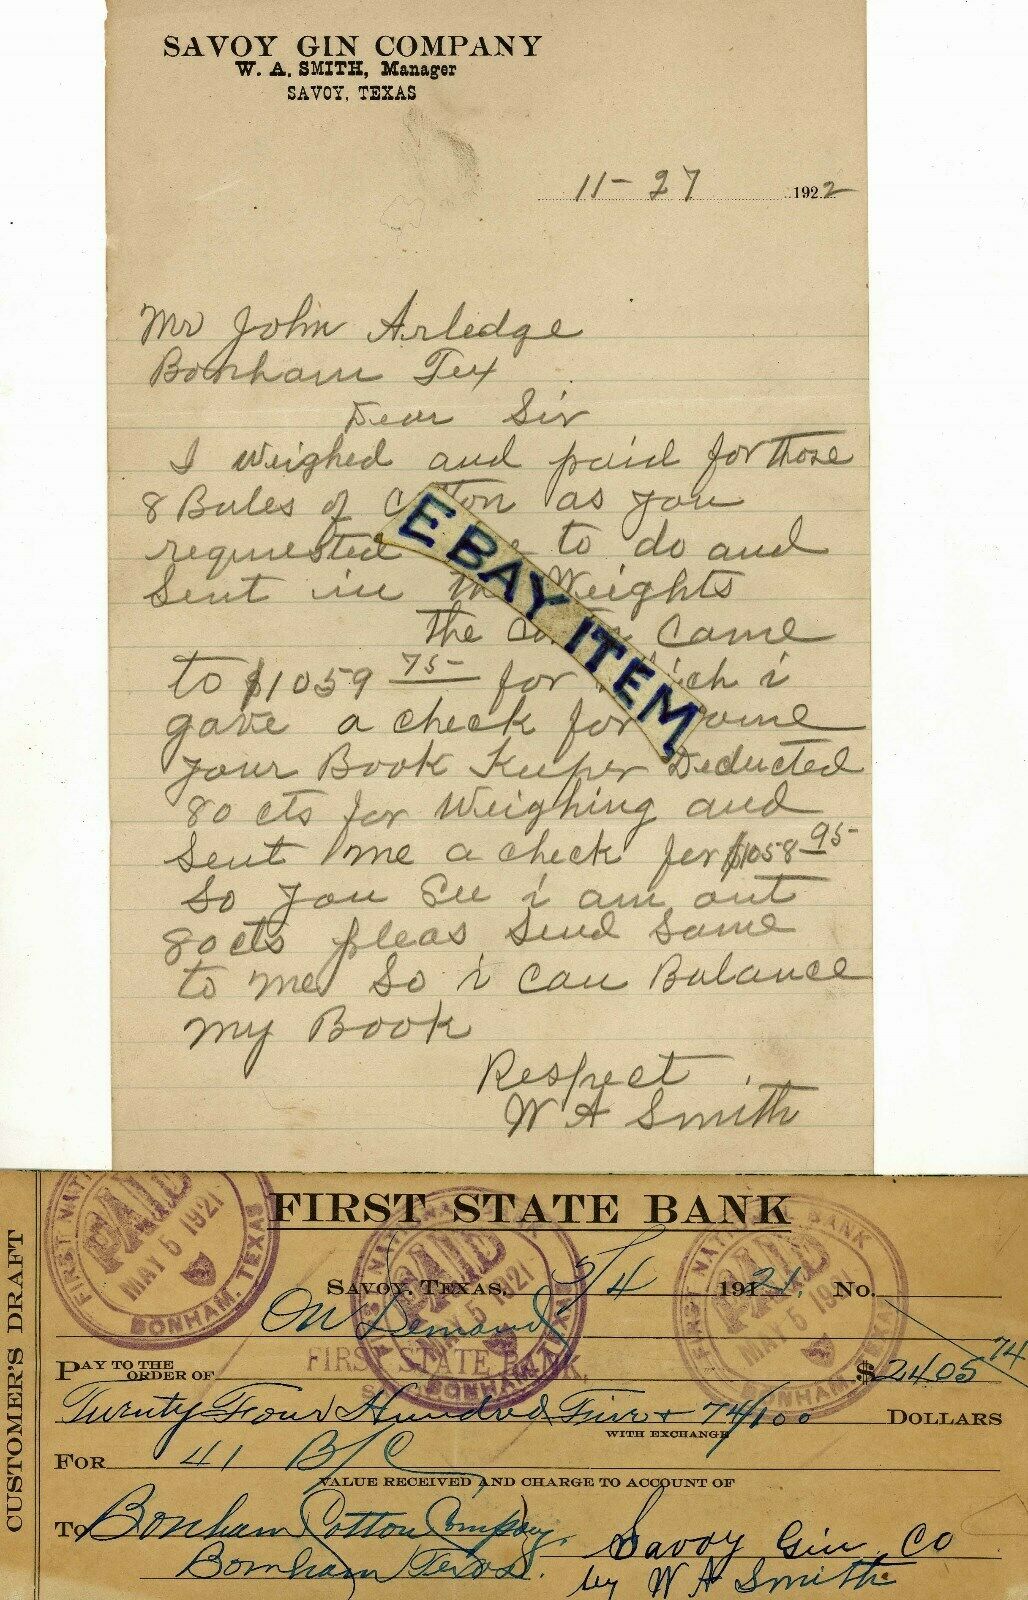 SAVOY GIN COMPANY
W. A. SMITH, Manager
SAVOY, TEXAS
11-27 1922
Mr John Arledge
Bonham Tex
Dear Sir
I Weighed and paid for those
8 Bales of Cotton as you
requested to do and
Sent in the Weights
The Came
to $1059 75 for which i
gave a check for Same
your Book Keeper Deducted
80 cts for Weighing and
Sent me a check for $1058 95
So you See i am out
80 cts pleas Send Same
to me So i can Balance
my Book
Respect
W A Smith
EBAY ITEM
CUSTOMER'S DRAFT
FIRST STATE BANK
SAVOY, TEXAS, 5/4 1921. No.
On Demand
PAY TO THE ORDER OF FIRST STATE BANK, $2405 74
Twenty Four Hundred Five + 74/100 DOLLARS
WITH EXCHANGE
FOR 41 B/C
VALUE RECEIVED AND CHARGE TO ACCOUNT OF
TO Bonham Cotton Company. Savoy Gin Co
Bonham Texas. by W A Smith
FIRST NATI PAID MAY 5 1921 BONHAM, TEXAS
NATIONAL PAID MAY 5 1921 BONHAM, TEXAS
FIRST NATIONAL BANK PAID MAY 5 1921 BONHAM, TEXAS